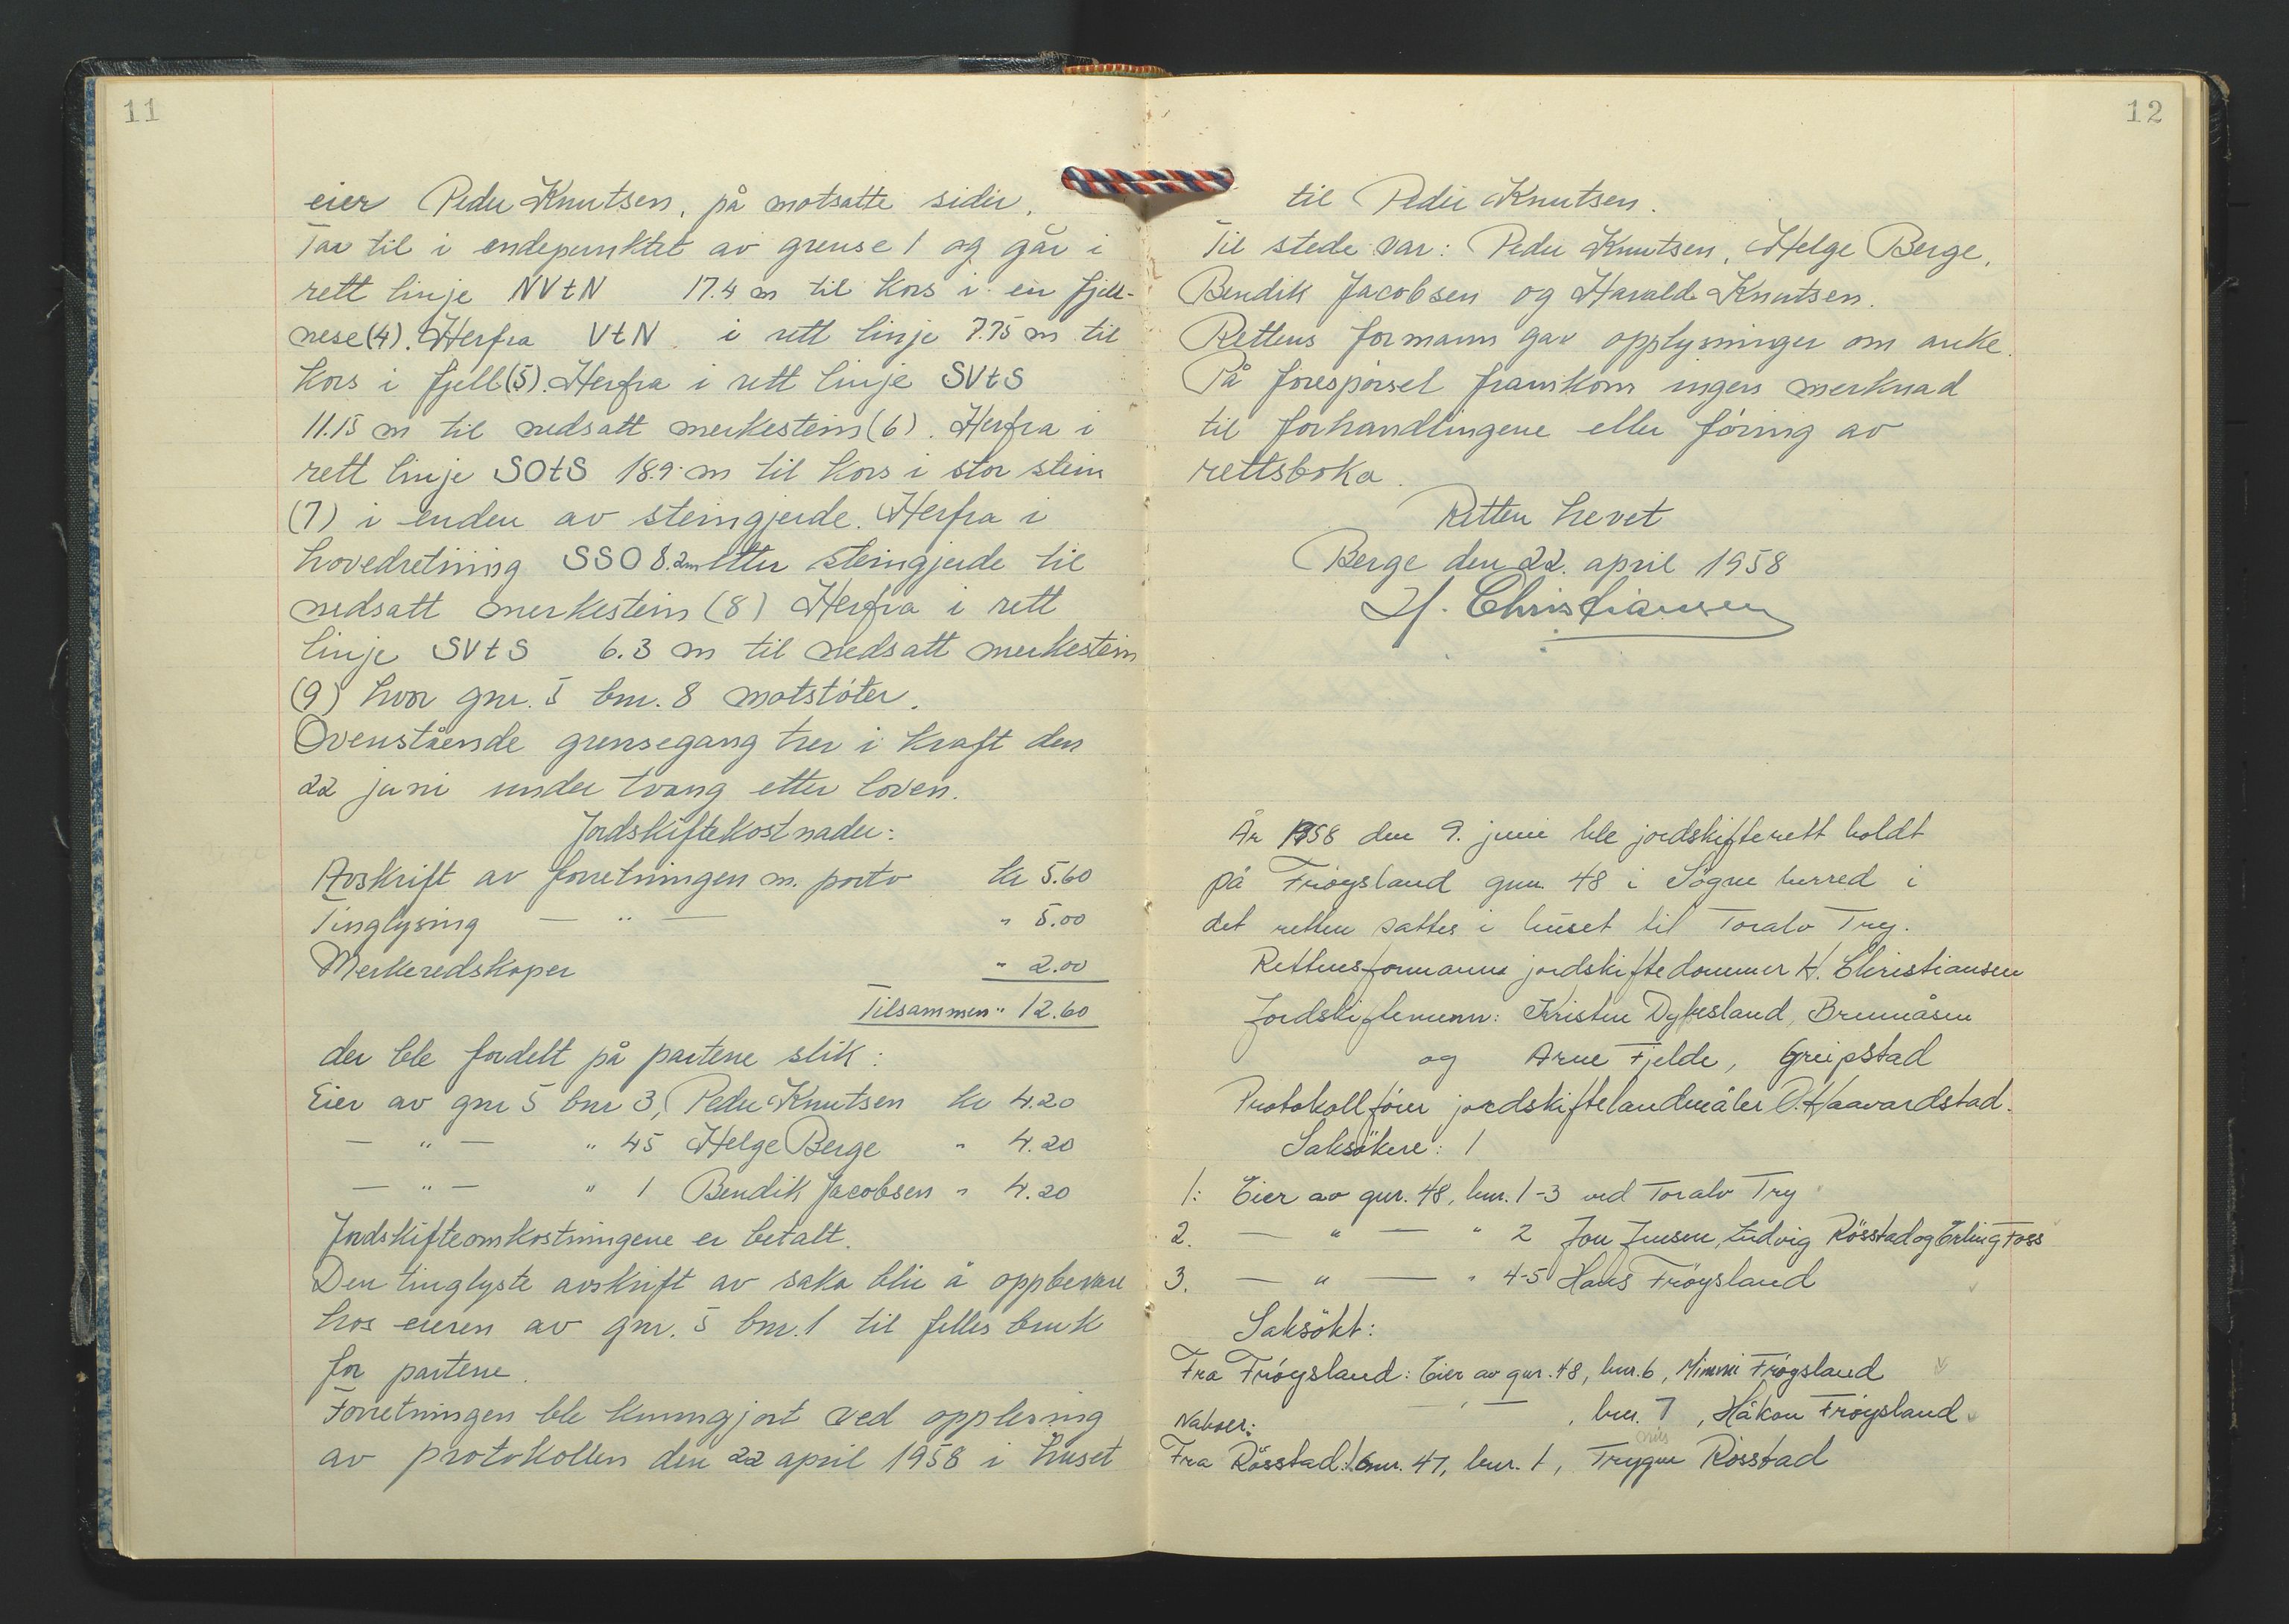 11
eier Peder Knutsen, på motsatte sider.
Tar til i endepunktet av grense 1 og går i
rett linje NVtN 17.4 m til kors i en fjell-
nese (4). Herfra VtN i rett linje 7.75 m til
kors i fjell (5). Herfra i rett linje SVtS
11.15 m til nedsatt merkestein (6). Herfra i
rett linje SOtS 18.9 m til kors i stor stein
(7) i enden av steingjerde. Herfra i
hovedretning SSO 8.2m etter steingjerde til
nedsatt merkestein (8) Herfra i rett
linje SVtS 6.3 m til nedsatt merkestein
(9) hvor gnr. 5 bnr. 8 motstöter.
Ovenstående grensegang trer i kraft den
22 juni under tvang etter loven.
Jordskiftekostnader:
Avskrift av forretningen m. porto kr 5.60
Tinglysing — " — " 5.00
Merkeredskaper " 2.00
Tilsammen " 12.60
der ble fordelt på partene slik:
Eier av gnr 5 bnr 3, Peder Knutsen kr 4.20
— " — " 45 Helge Berge " 4.20
— " — " 1 Bendik Jacobsen " 4.20
Jordskifteomkostningene er betalt.
Den tinglyste avskrift av saka blir å oppbevare
hos eieren av gnr. 5 bnr. 1 til felles bruk
for partene.
Forretningen ble kunngjort ved opplesing
av protokollen den 22 april 1958 i huset
12
til Peder Knutsen.
Til stede var: Peder Knutsen, Helge Berge,
Bendik Jacobsen og Harald Knutsen.
Rettens formann gav opplysninger om anke.
På forespörsel framkom ingen merknad
til forhandlingene eller föring av
rettsboka.
Retten hevet
Berge den 22. april 1958
H. Christiansen
År 1958 den 9. juni ble jordskifterett holdt
på Fröysland gnr. 48 i Sögne herred i
det retten sattes i huset til Toralv Try.
Rettensformann jordskiftedommer H. Christiansen
Jordskiftemenn: Kristen Dybesland, Brennåsen
og Arne Fjelde, Greipstad
Protokollförer jordskiftelandmåler O. Haavardstad.
Saksökere: 1
1: Eier av gnr. 48, bnr. 1-3 ved Toralv Try
2. — " — " 2 Jon Jensen, Ludvig Rösstad og Erling Foss
3. — " — " 4-5 Hans Fröysland
Saksökt:
Fra Fröysland: Eier av gnr. 48, bnr. 6, Mimmi Fröysland
— " — , bnr. 7, Håkon Fröysland
Naboer:
Fra Rösstad: 1. Gnr. 47, bnr. 1, Trygve Rösstad